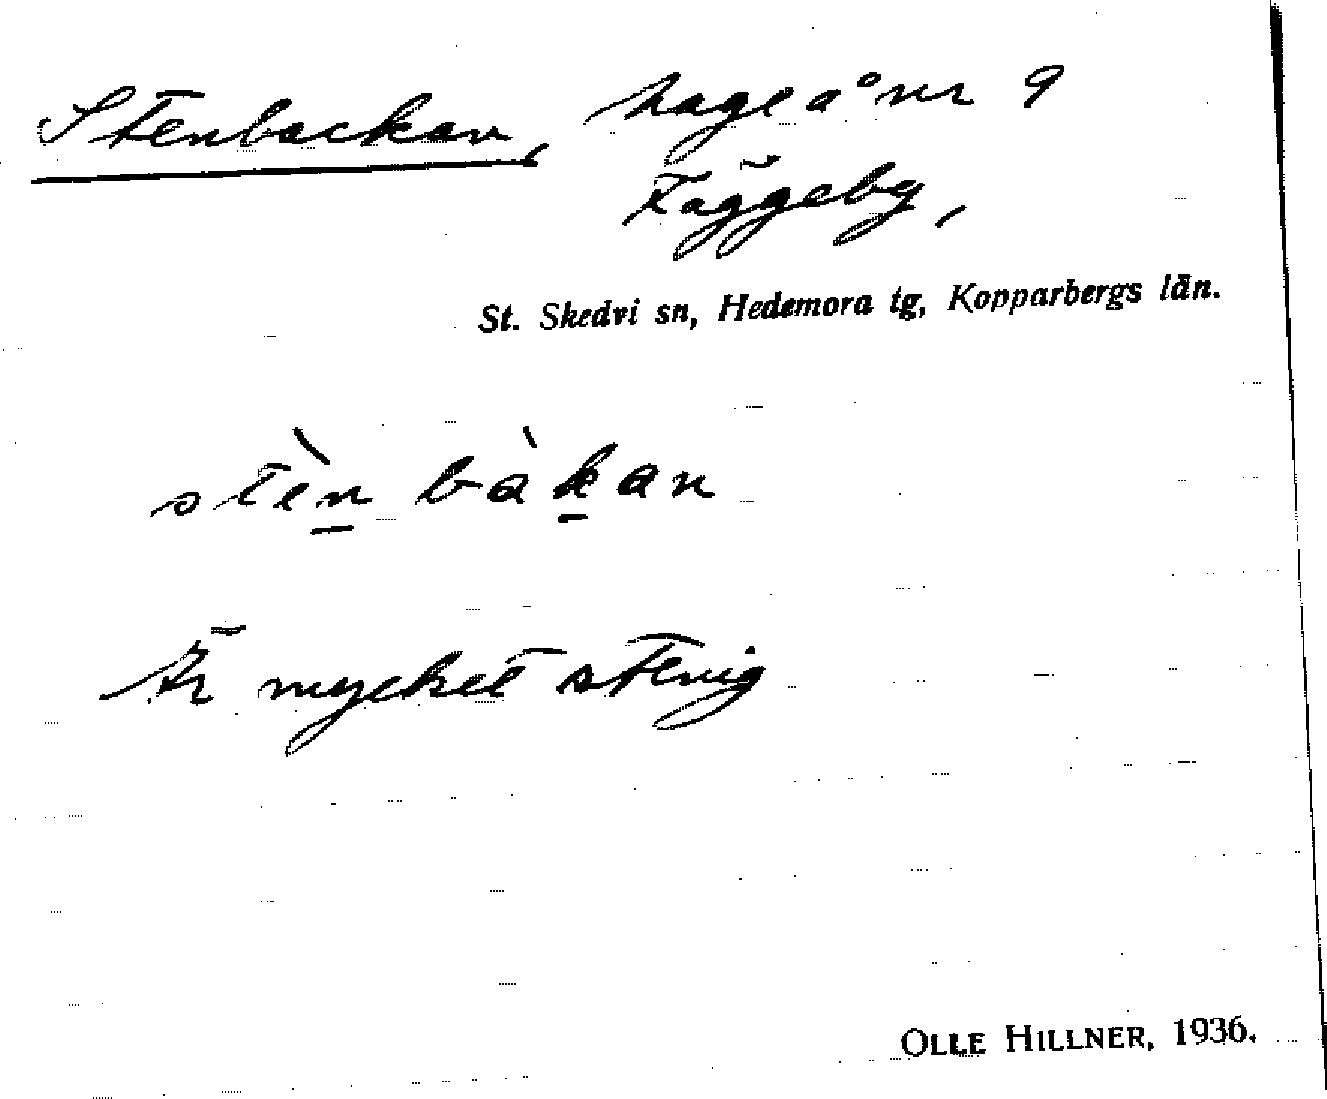 Stenbackan, hage å nr 9
Fäggeby,
St. Skedvi sn, Hedemora tg, Kopparbergs län.
stèn bàkan
Är mycket stenig
OLLE HILLNER, 1936.